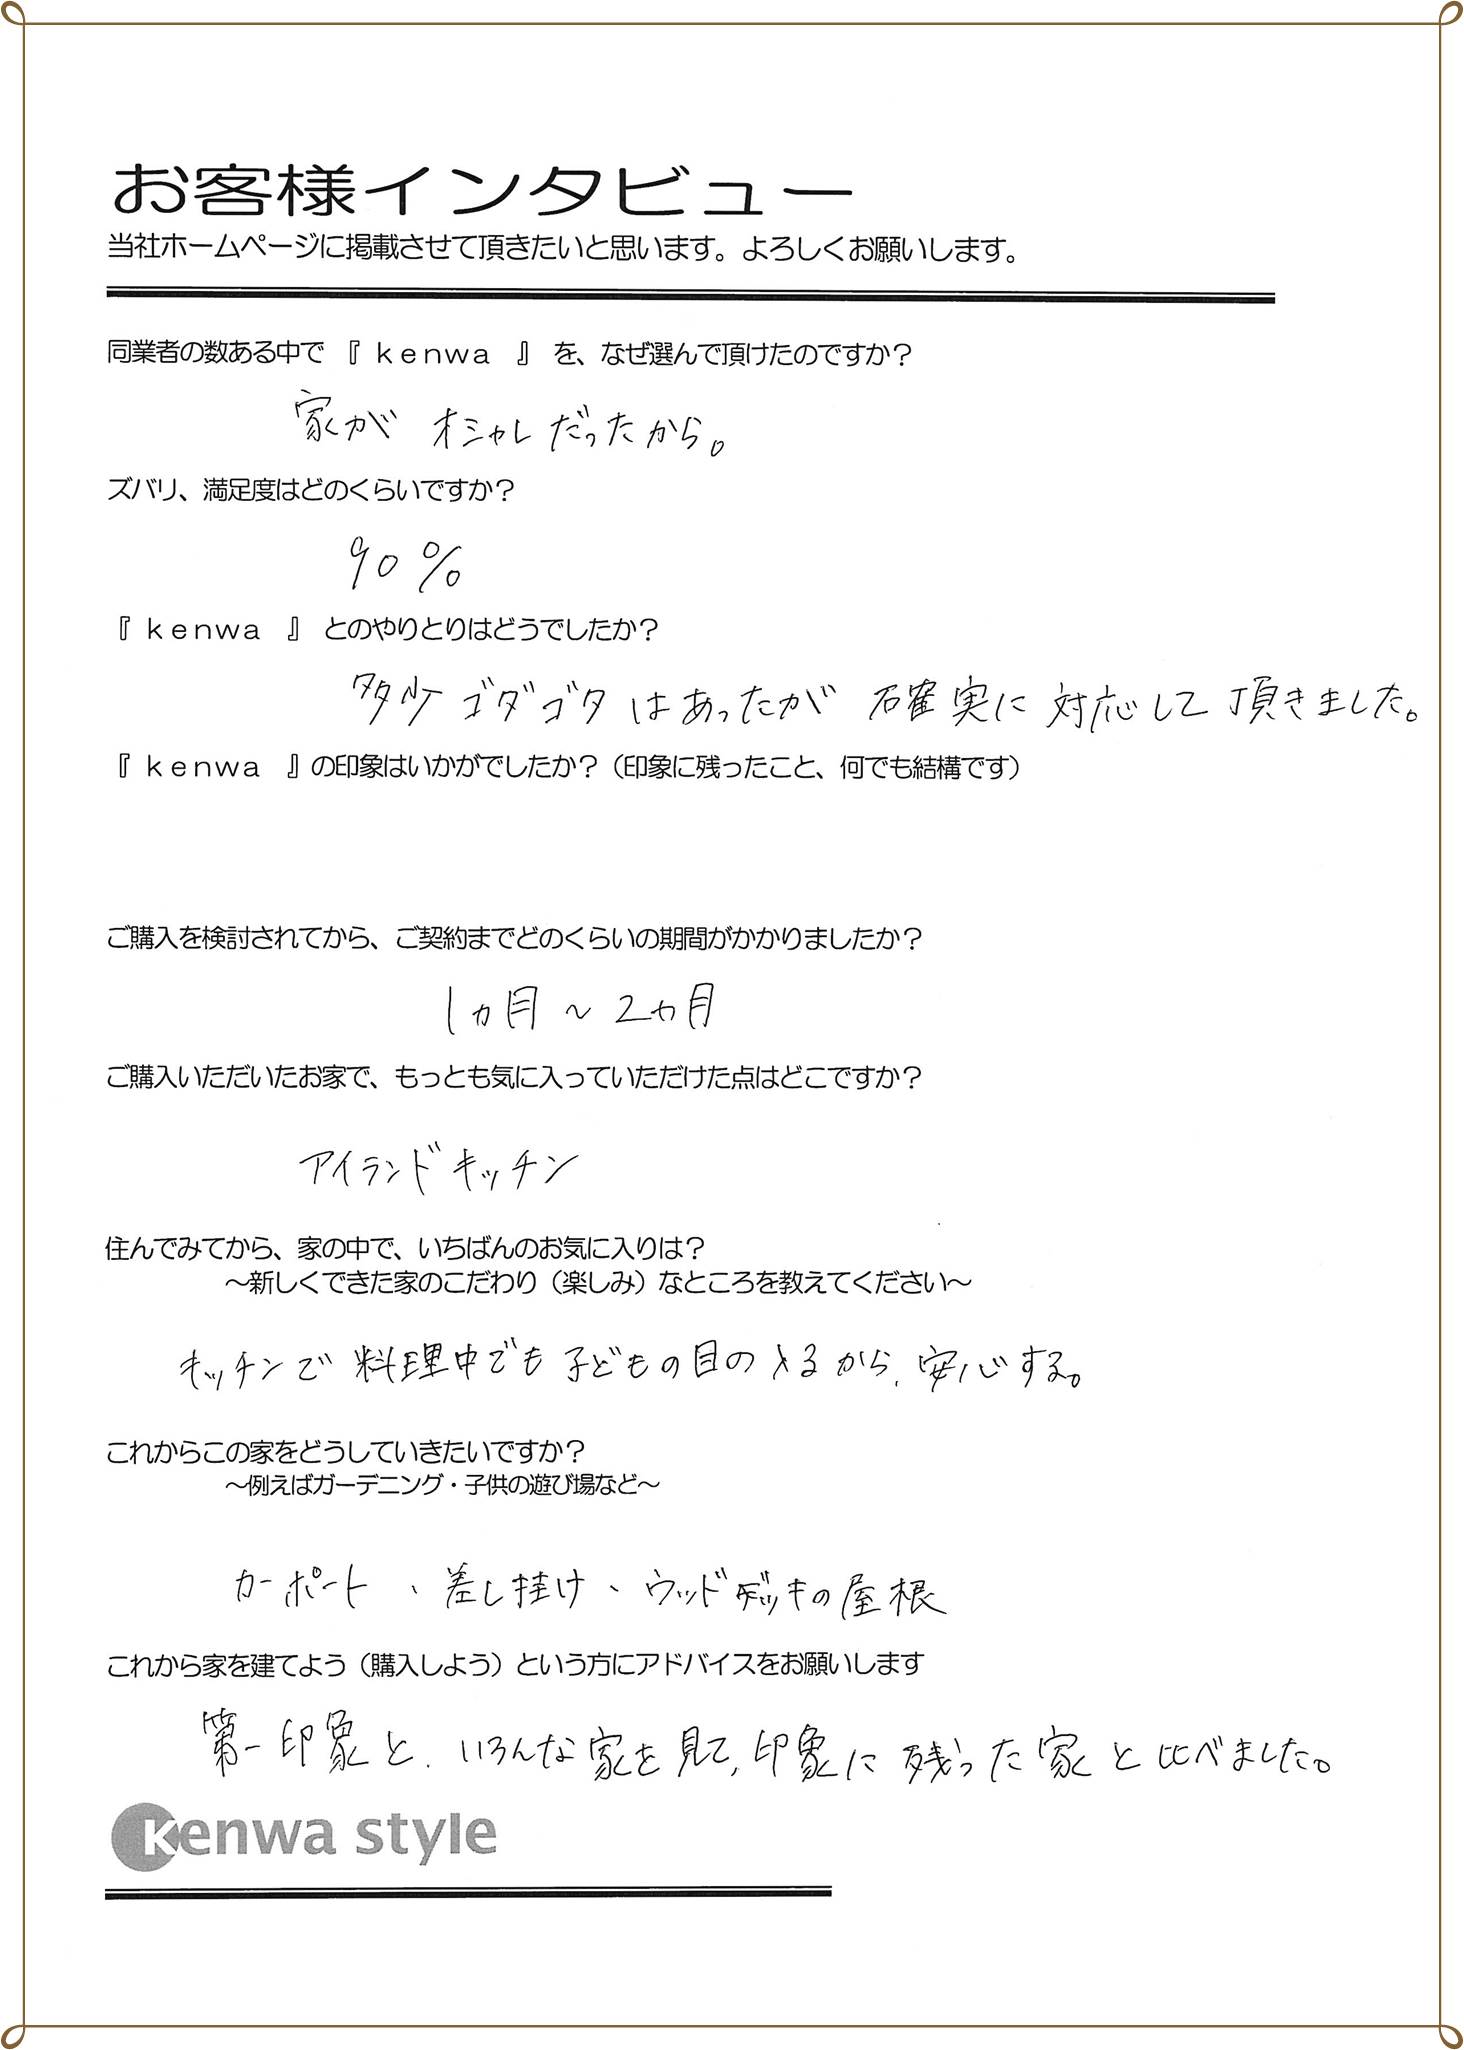 お客様インタビュー
当社ホームページに掲載させて頂きたいと思います。よろしくお願いします。
同業者の数ある中で 『 kenwa 』 を、なぜ選んで頂けたのですか？
家が オシャレだったから。
ズバリ、満足度はどのくらいですか？
90%
『 kenwa 』 とのやりとりはどうでしたか？
多少 ゴタゴタ はあったが 確実に 対応して 頂きました。
『 kenwa 』の印象はいかがでしたか？（印象に残ったこと、何でも結構です）
ご購入を検討されてから、ご契約までどのくらいの期間がかかりましたか？
1ヵ月～2ヵ月
ご購入いただいたお家で、もっとも気に入っていただけた点はどこですか？
アイランドキッチン
住んでみてから、家の中で、いちばんのお気に入りは？
～新しくできた家のこだわり（楽しみ）なところを教えてください～
キッチンで 料理中でも 子どもの目の する から、安心する。
これからこの家をどうしていきたいですか？
～例えばガーデニング・子供の遊び場など～
カーポート、差し掛け、ウッドデッキの屋根
これから家を建てよう（購入しよう）という方にアドバイスをお願いします
第一印象と、いろんな家を見て、印象に残った家と比べました。
Kenwa style